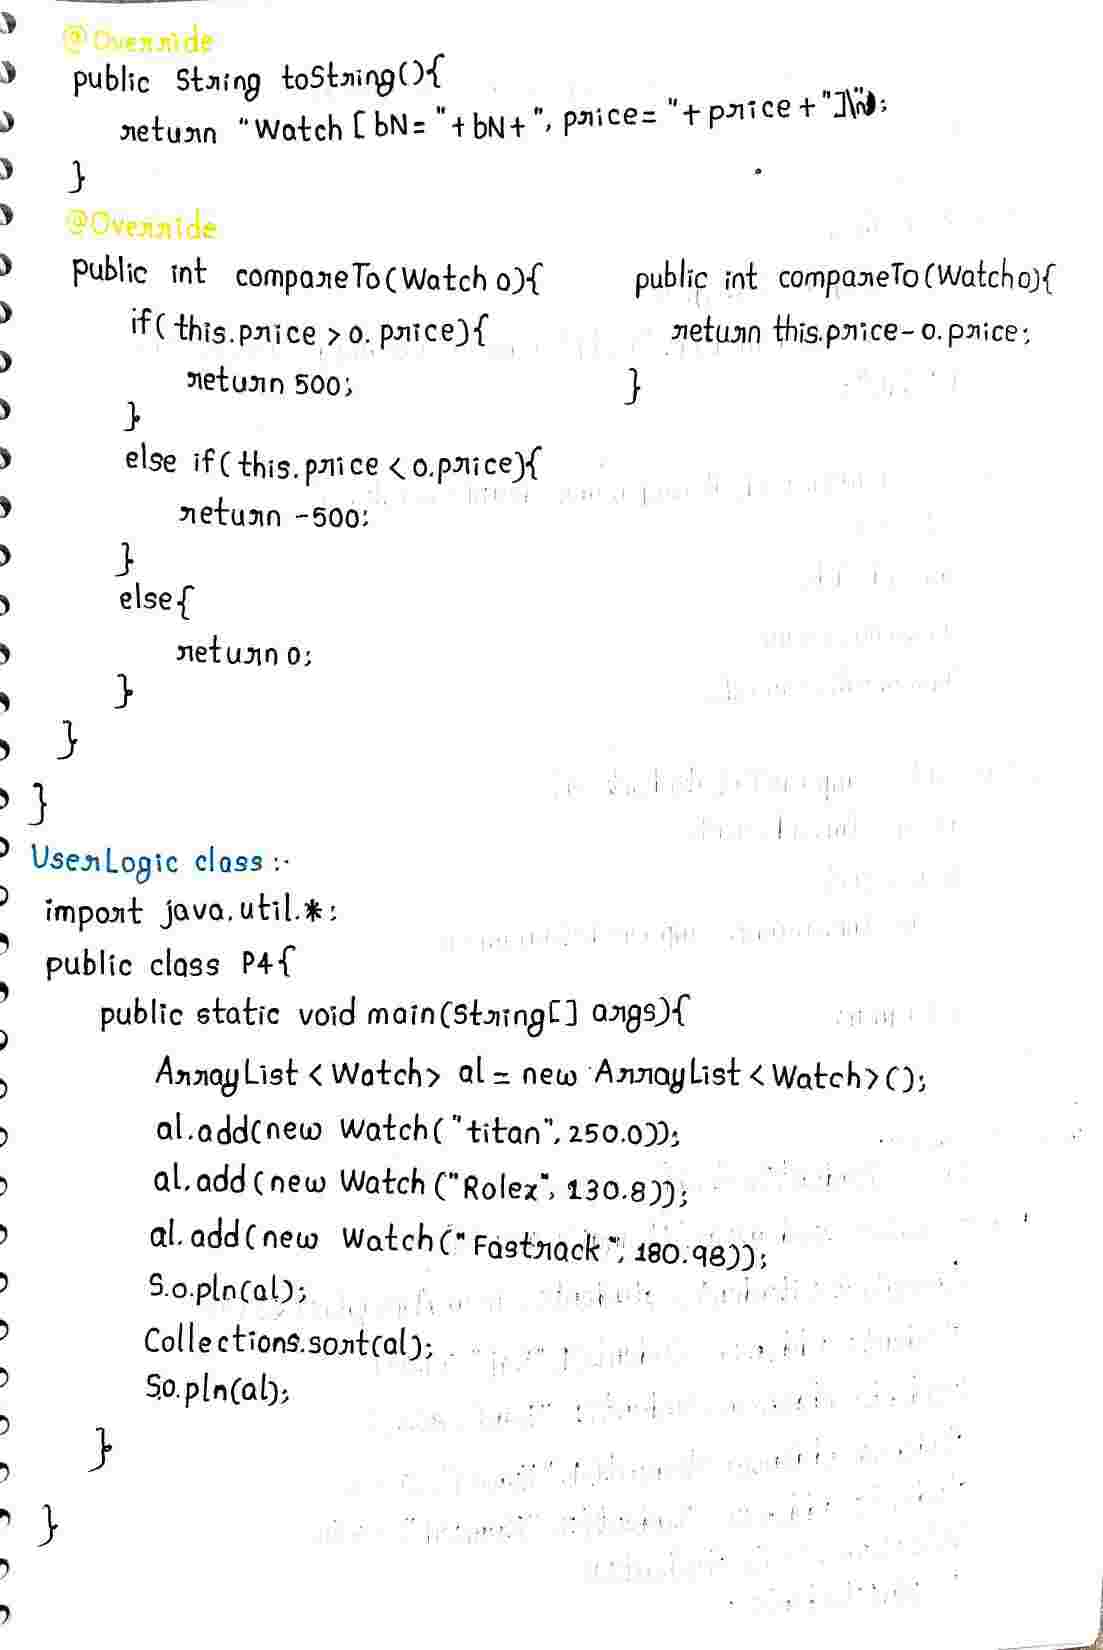 @Override
public String toString(){
return "Watch [ bN= "+bN+", price= "+price+"]\n";
}
@Override
public int compareTo(Watch o){
if(this.price > o.price){
return 500;
}
else if(this.price < o.price){
return -500;
}
else{
return 0;
}
}
}
public int compareTo(Watch o){
return this.price-o.price;
}
UserLogic class :-
import java.util.*;
public class P4{
public static void main(String[] args){
ArrayList <Watch> al = new ArrayList <Watch>();
al.add(new Watch("titan", 250.0));
al.add(new Watch ("Rolex", 130.8));
al.add(new Watch("Fastrack", 180.98));
S.o.pln(al);
Collections.sort(al);
S.o.pln(al);
}
}